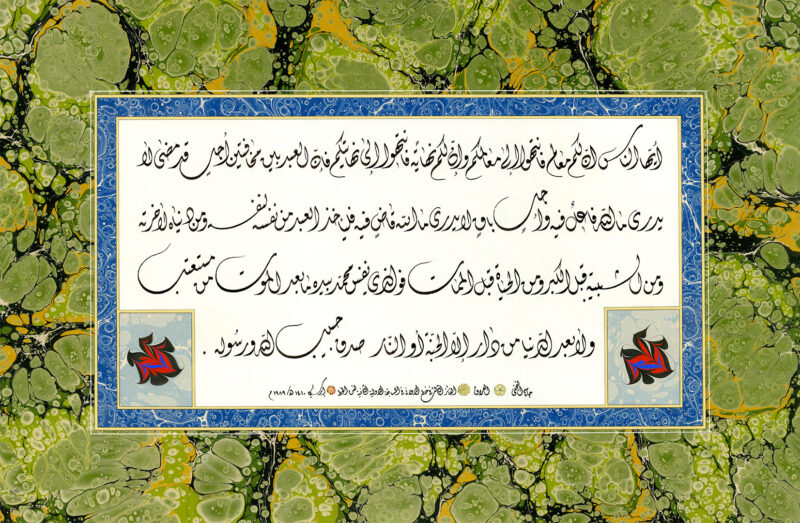 أيها الناس إن لكم معالم فانتهوا إلى معالمكم وإن لكم نهاية فانتهوا إلى نهايتكم فإن العبد بين مخافتين أجل قد مضى لا
يدرى ما الله فاعل فيه وأجل باق لا يدرى ما الله قاض فيه فليأخذ العبد من نفسه لنفسه ومن دنياه لآخرته
ومن الشبيبة قبل الكبر ومن الحياة قبل الممات فوالذى نفس محمد بيده ما بعد الموت من مستعتب
ولا بعد الدنيا من دار إلا الجنة أو النار صدق حبيب الله ورسوله .